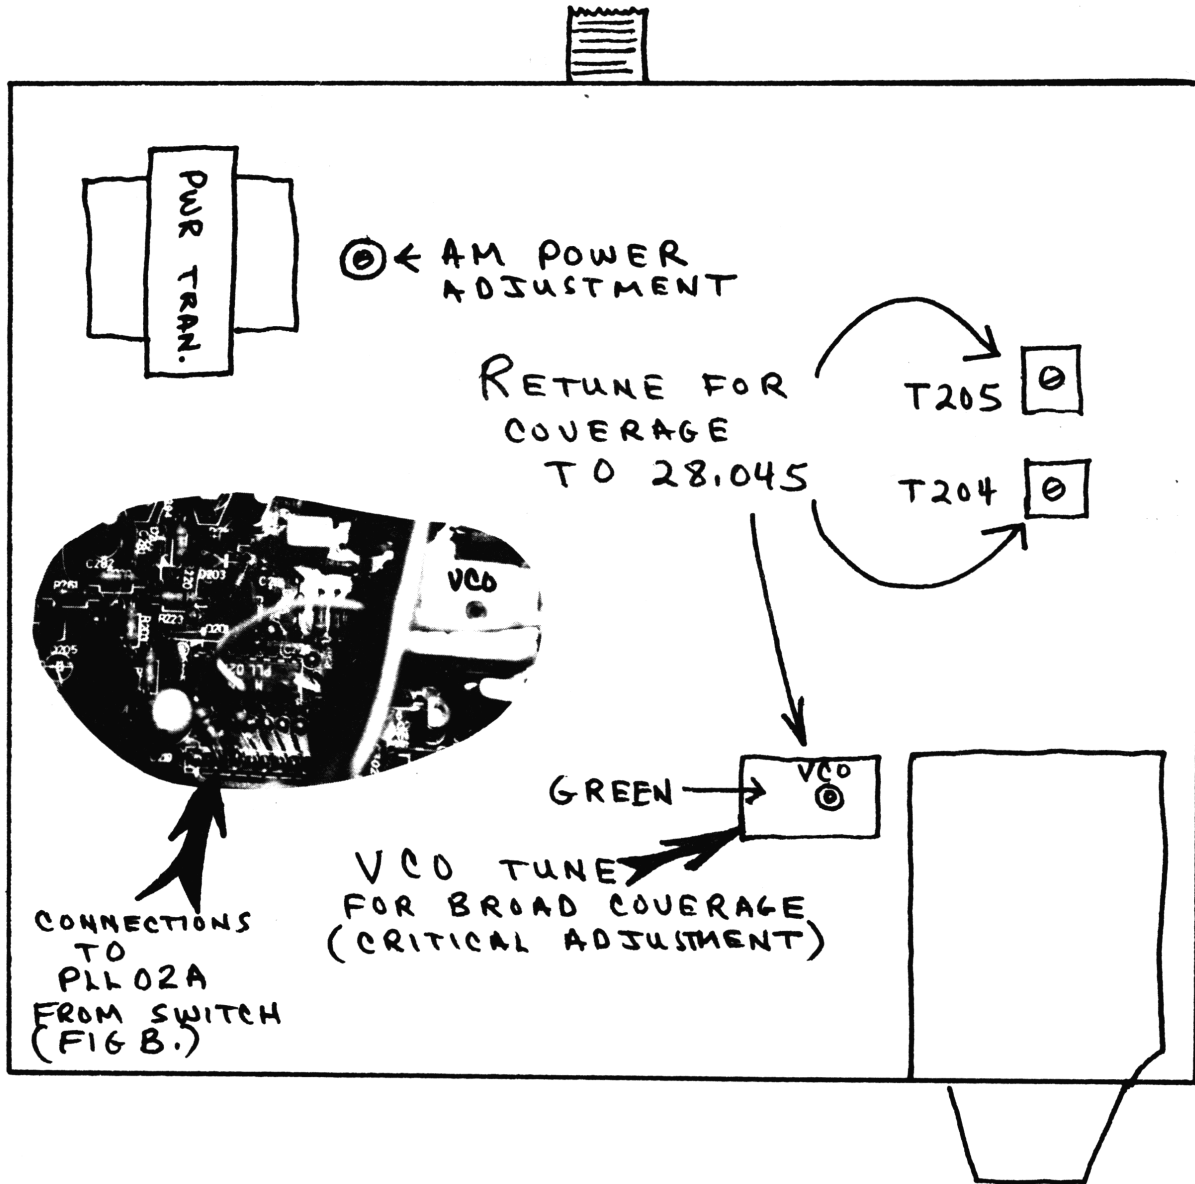 PWR TRAN.
AM POWER
ADJUSTMENT
RETUNE FOR
COVERAGE
TO 28.045
T205
T204
VCO
C282
D203
R223
R201
PLL 02
VCO
GREEN
VCO TUNE
FOR BROAD COVERAGE
(CRITICAL ADJUSTMENT)
CONNECTIONS
TO
PLL02A
FROM SWITCH
(FIG B.)